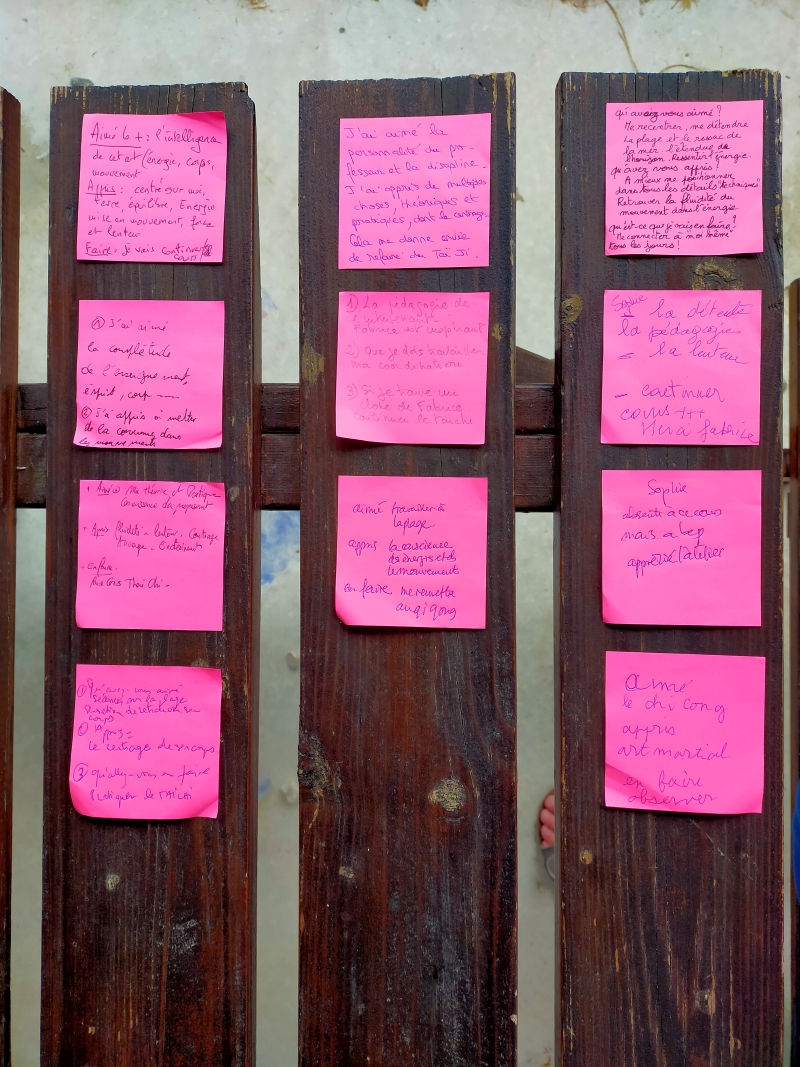 Aimé le + : l'intelligence
de cet art (énergie, corps,
mouvement
Appris : centré sur moi,
Terre, équilibre, Energie
mise en mouvement, force
et lenteur
Faire : je vais continuer
cours
① J'ai aimé
la complétude
de l'enseignement,
esprit, corp
② J'ai appris à mettre
de la conscience dans
les mouvements
- Aimé la théorie et Pratique
- Appris fluidité - lenteur - Centrage
- En faire -
Thaï Chi -
① Qu'avez-vous aimé
séances sur la plage
corps
②
le centrage de mon corps
③ qu'allez-vous en faire
Pratiquer le TAICHI
J'ai aimé la
personnalité du pro-
fesseur et la discipline.
J'ai appris de multiples
choses, théoriques et
pratiques, dont le centrage.
Cela me donne envie
de refaire du Taï Ji.
1) La pédagogie de
l'intervenant
Fabrice est inspirant
2) Que je dois travailler
ma coordination
3) Si je trouve un
de Fabrice
continuer le Taichi
aimé travailler à
la plage
appris la conscience
des énergies et des
le mouvement
en faire me remettre
au qi gong
qu'avez vous aimé ?
Me recentrer, me détendre
La plage et le ressac de
la mer. l'étendue de
l'horizon. Ressentir l'énergie.
qu'avez vous appris ?
A mieux me positionner
dans tous les détails "techniques"
Retrouver la fluidité du
mouvement dans l'énergie
qu'est-ce que je vais en faire ?
Me connecter à moi même
tous les jours !
Sophie
- la détente
la pédagogie
= la lenteur
- continuer
cours ++
Merci fabrice
Sophie
absente à ce cours
mais a bcp
apprécié l'atelier
aimé
le chi cong
appris
art martial
en faire
observer